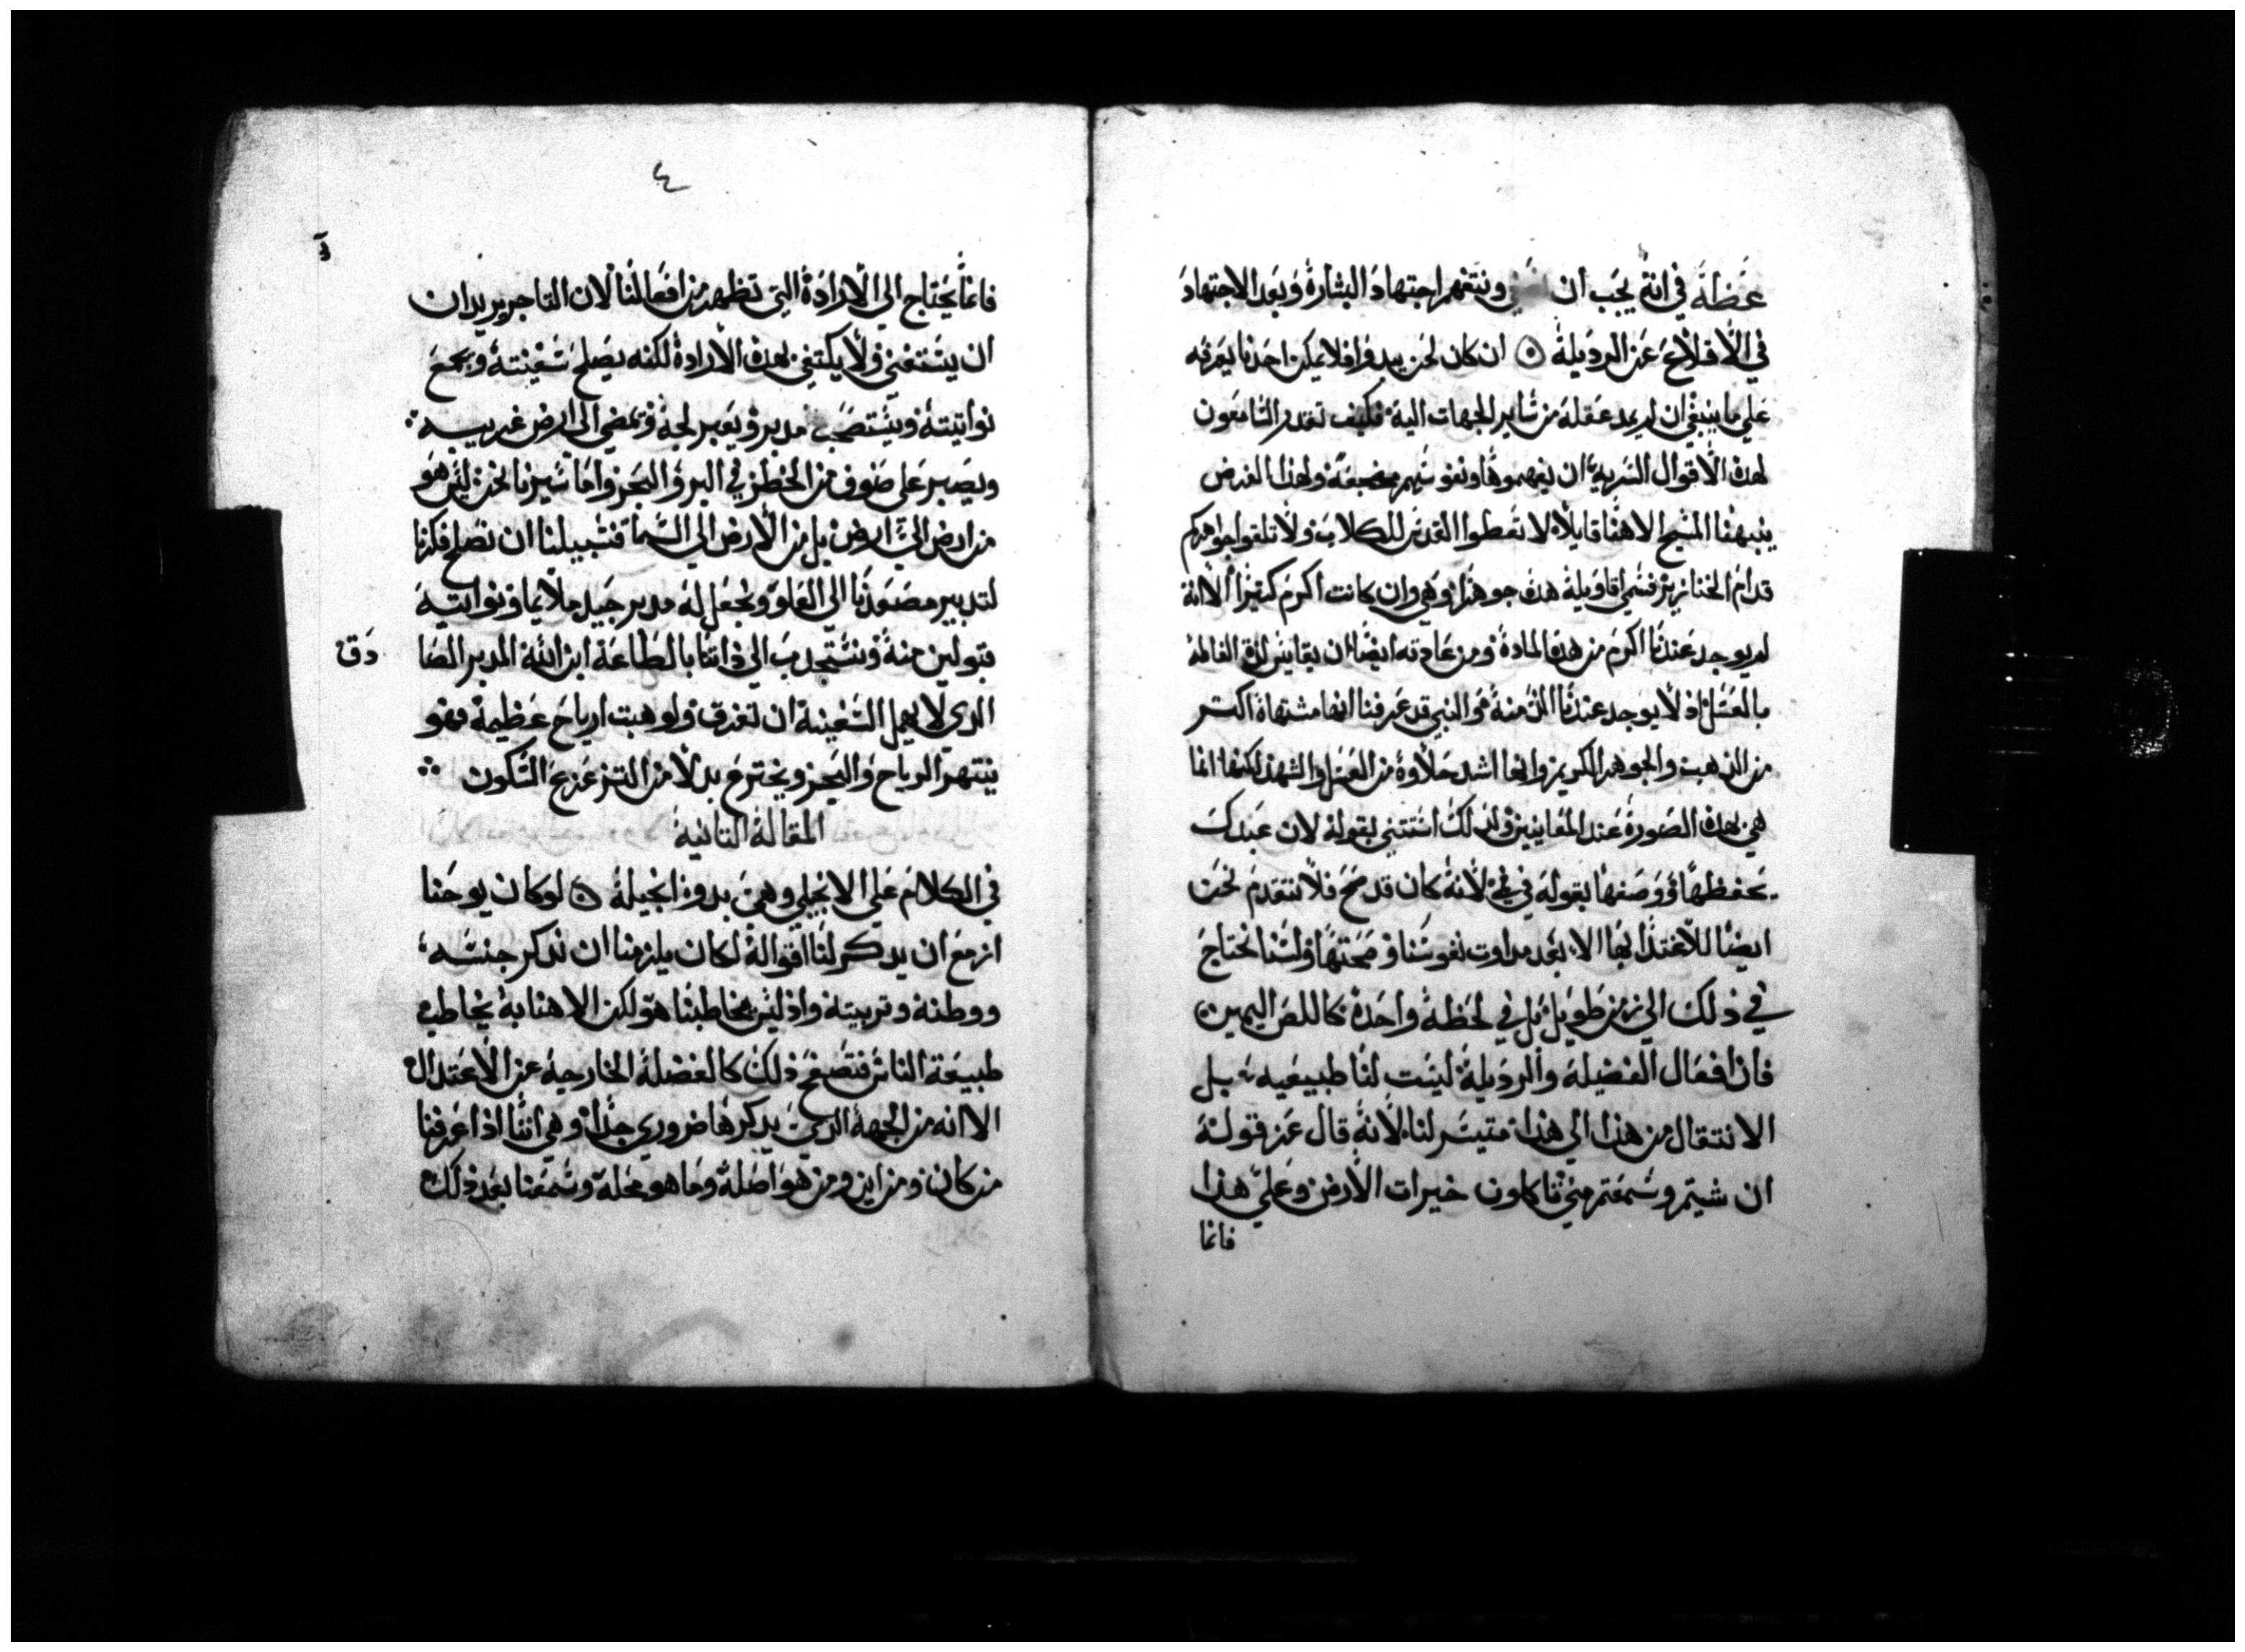 عظة في انه يجب ان ونتفهم اجتهاد البشارة وبعد الاجتهاد
في الاقلاع عن الرديلة ان كان لحن يبدوا فلا يمكن احدنا يعرفه
علي ما ينبغي ان لم يمد عقله من ساير الجهات اليه فكيف تقدر السامعون
لهده الاقوال السريه ان يفهموها ونفوسهم مضجعة ولهذا الغرض
ينبهنا المسيح الاهنا قايلا لا تعطوا القدس للكلاب ولا تلقوا جواهركم
قدام الخنازير فسمي اقاويله هده جوهرا وهي وان كانت اكرم كثيرا الا انه
لم يوجد عندنا اكرم من هده المادة ومن عادته ايضا ان يقايس لذة العالم
بالعسل اذ لا يوجد عندنا الذ منه هو النبي قد عرفنا انها مشتهاة اكتر
من الذهب والجوهر الكريم وانها اشد حلاوة من العسل والشهد لكنها انما
هي بهده الصورة عند المعافيين ولذلك استتني بقوله لان عبدك
يحفظها ووصفها بقوله في لانه كان قد صح فلا نتقدم نحن
ايضا للاغتذا بها الا بعد مداوت نفوسنا وصحتها ولسنا نحتاج
في ذلك الي زمن طويل بل في لحظة واحدة كاللص اليمين
فان افعال الفضيلة والرديلة ليست لنا طبيعيه بل
الانتقال من هذا الي هذا متيسر لنا لانه قال عز قوله
ان شيتم وسمعتم مني تاكلون خيرات الارض وعلي هذا
فانما
٤
فانما يحتاج الي الارادة التي تظهر من افعالنا لان التاجر يريد ان
ان يستغني ولا يكتفي بهده الارادة لكنه يصلح سفينته ويجمع
نواتيته ويستصحب مدبر ويعبر لجة وتمضي الي ارض غريبه
ويصبر علي صنوف من الخطر في البر والبحر واما سيرنا نحن ليس هو
من ارض الي ارض بل من الارض الي السما فسبيلنا ان نصلح فكرنا
لتدبير مصعدنا الي العلو ونجعل له مدبر جيد ملايما ونواتيه
قبولين منه ونستجدب الي ذاتنا بالطاعة ابن الله المدبر الصا
دق
الدي لا يهمل السفينة ان تغرق ولو هبت ارياح عظيمة فهو
ينتهر الرياح والبحر ويخترع بدلا من التزعزع السكون
المقالة التانية
في الكلام علي الانجيلي وهي بدو انجيله لو كان يوحنا
ازمع ان يدكر لنا اقواله لكان يلزمنا ان ندكر جنسه
ووطنه وتربيته واذ ليس يخاطبنا هو لكن الاهنا به يخاطب
طبيعة الناس فتصفح ذلك كالفضلة الخارجية عن الاعتدال
الا انه من الجهة الدي يدكرها ضروري جدا وهي اننا اذا عرفنا
من كان ومن اين ومن هو اصله وما هو محله وسمعنا بعد ذلك